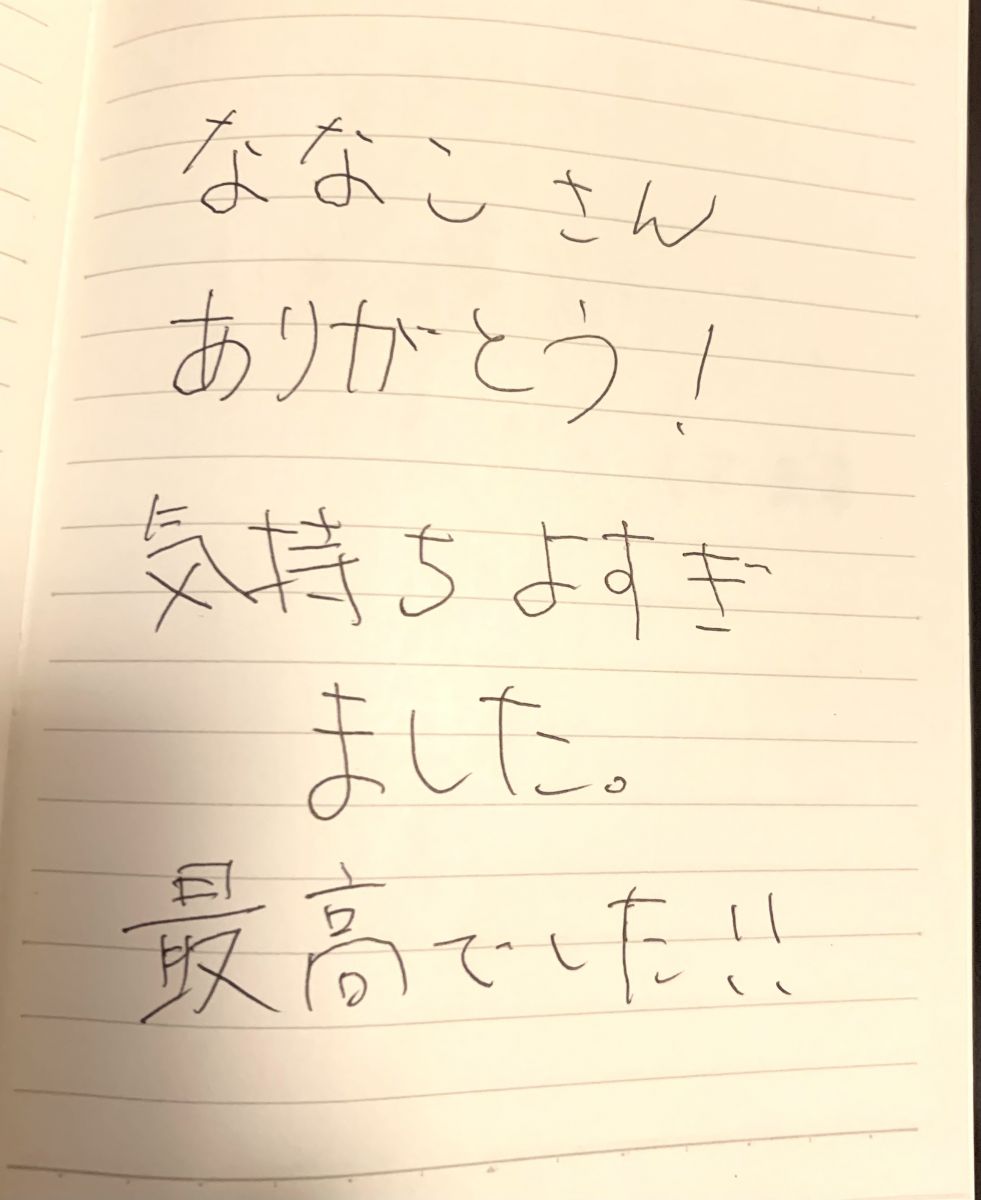 ななこさん
ありがとう!
気持ちよすぎ
ました。
最高でした!!